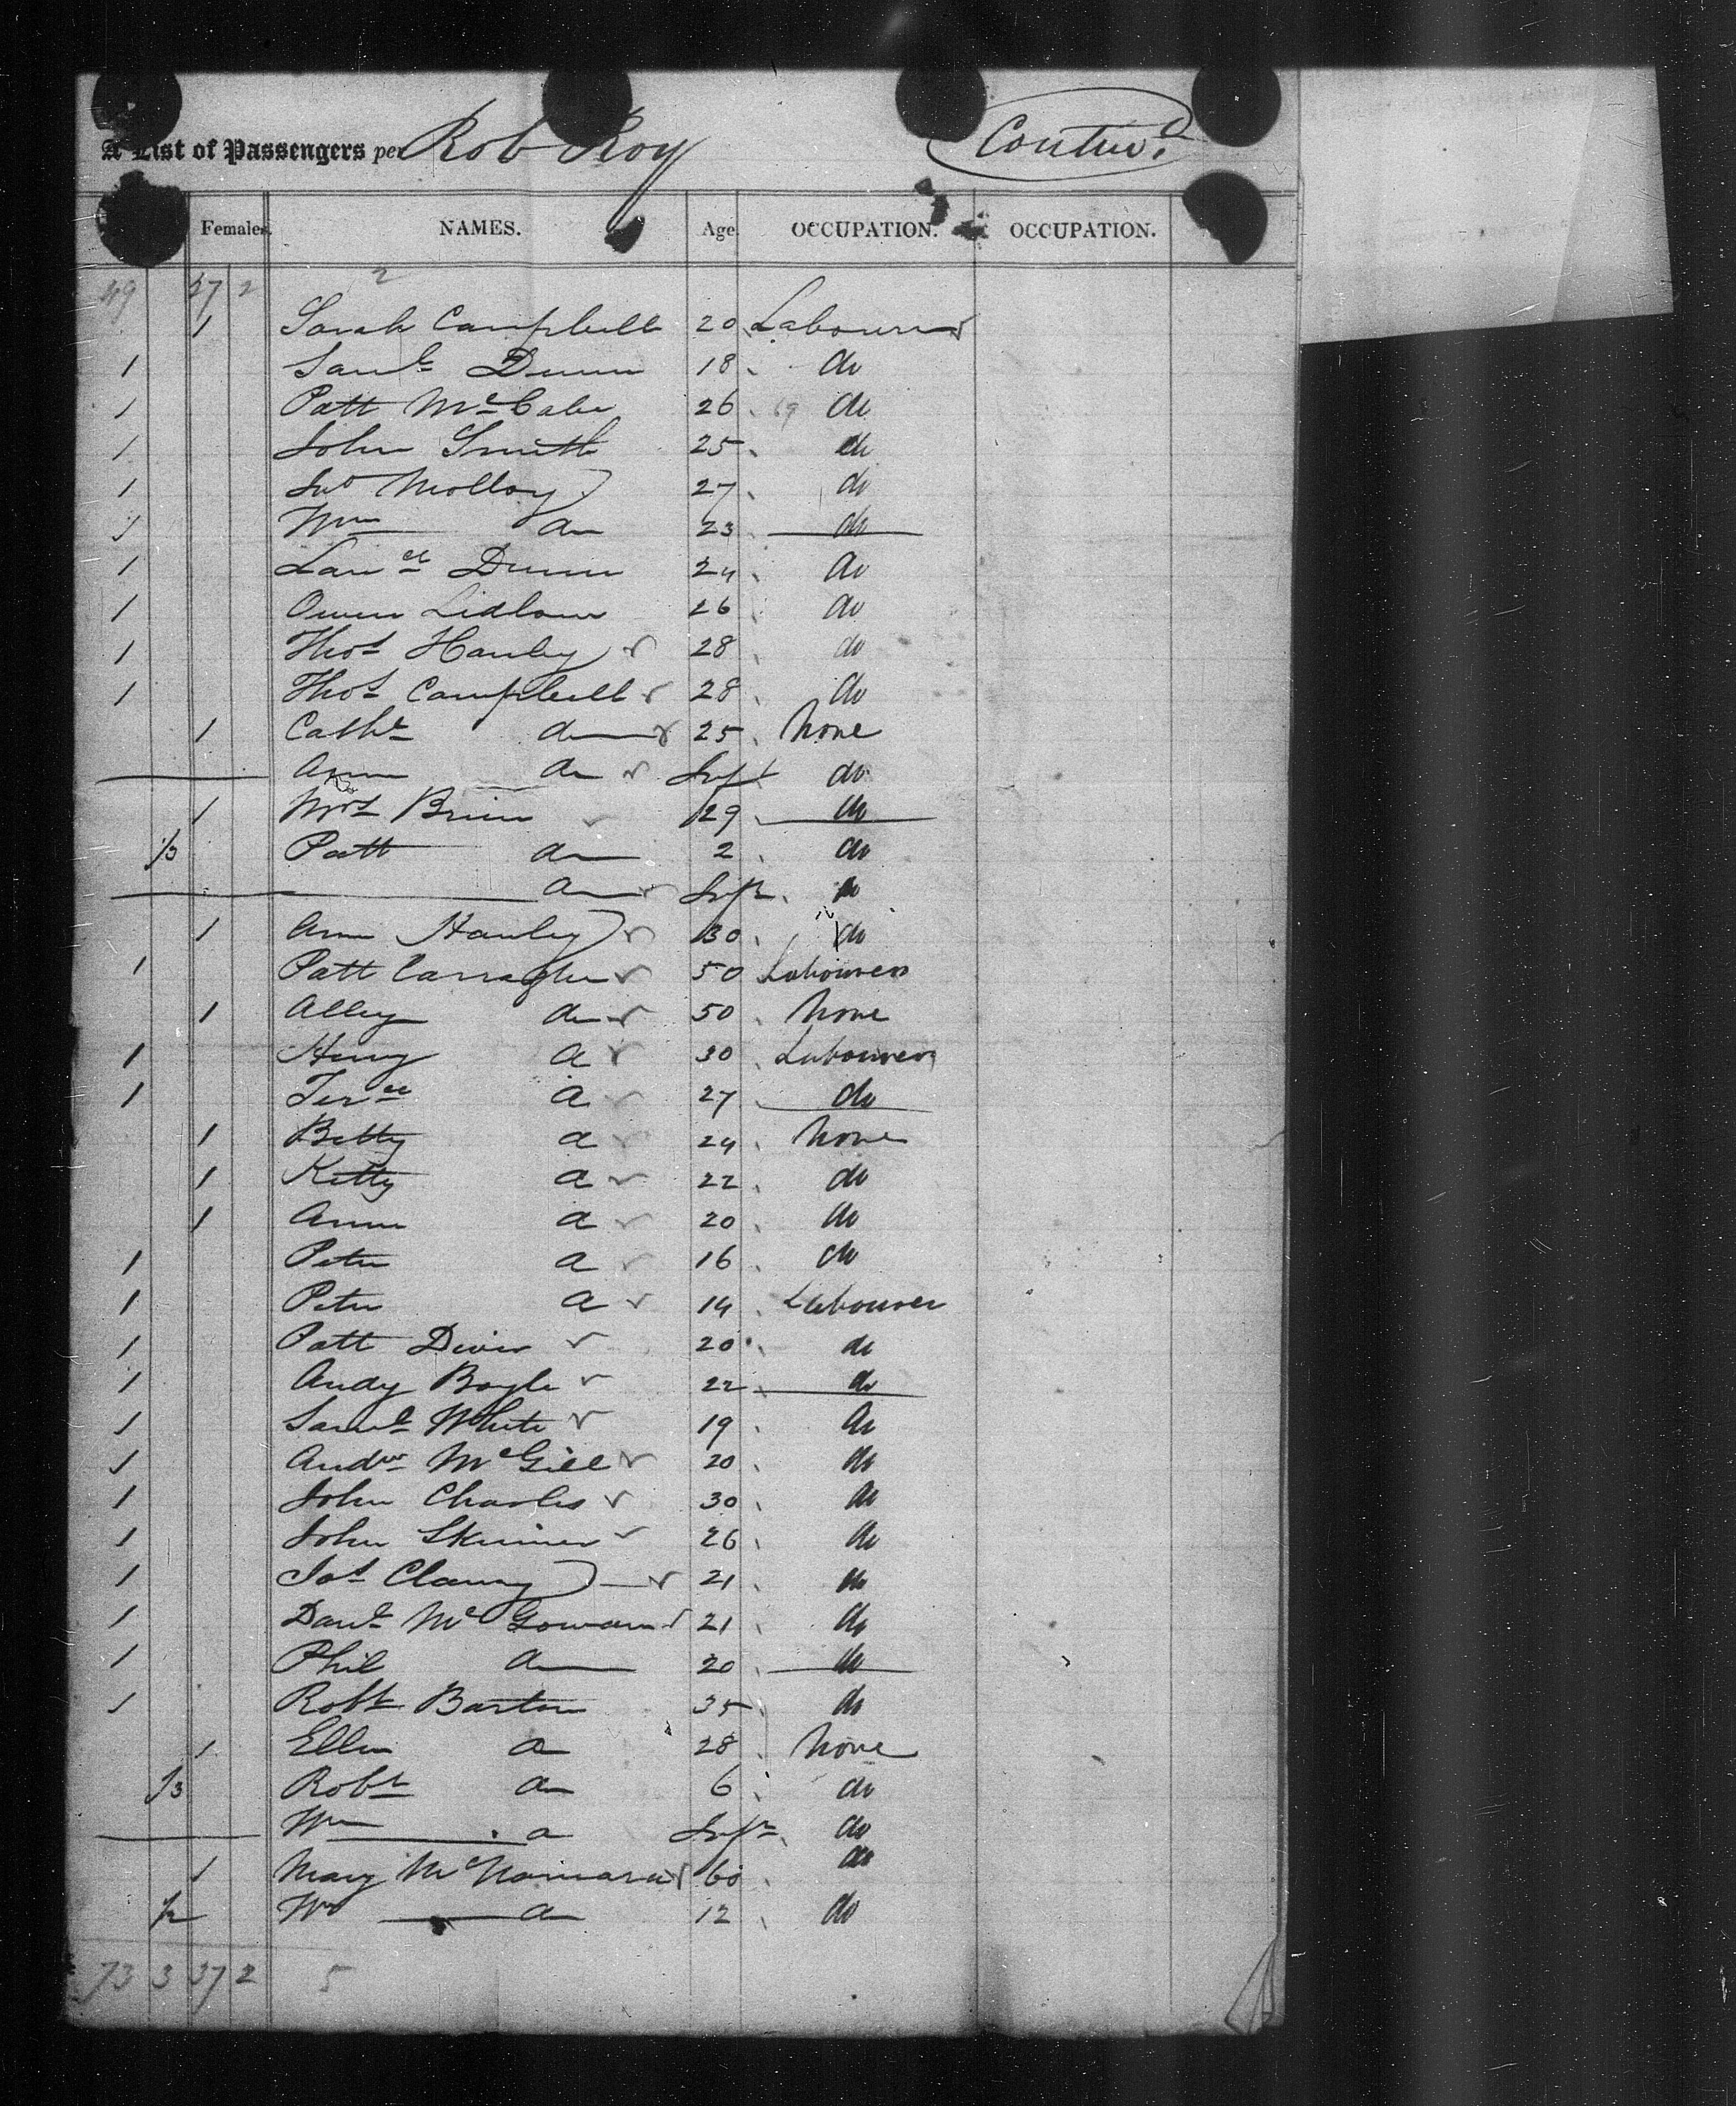 A List of Passengers per Rob Roy Contind.
Females. NAMES. Age. OCCUPATION. OCCUPATION.
49 27 2 2
1 Sarah Campbell 20 Labourer
1 Saml Dunn 18 do
1 Patt McCabe 26 do
1 John Smith 25 do
1 Jno Molloy 27 do
1 Wm do 23 do
1 Lawce Dunn 24 do
1 Owen 26 do
1 Thos Hanley 28 do
1 Thos Campbell 28 do
1 Cathe do 25 None
Ann do Inft do
1 Mrs Brien 29 do
1/3 Patt do 2 do
do Inft do
1 Ann Hanley 30 do
1 Patt Carragher 50 Labourer
1 Alley do 50 None
1 Henry do 30 Labourer
1 Terce do 27 do
1 Betty do 24 None
1 Kitty do 22 do
1 Ann do 20 do
1 Peter do 16 do
1 Peter do 14 Labourer
1 Patt Diver 20 do
1 Andy Boyle 22 do
1 Saml White 19 do
1 Andw McGill 20 do
1 John Charles 30 do
1 John Skinner 26 do
1 Jas Clancy 21 do
1 Danl McGowan 21 do
1 Phil do 20 do
1 Robt Barton 35 do
1 Ellen do 28 None
1/3 Robt do 6 do
Wm do Inft do
1 Mary McNamara 60 do
1/2 Wm do 12 do
73 3 37 2 5